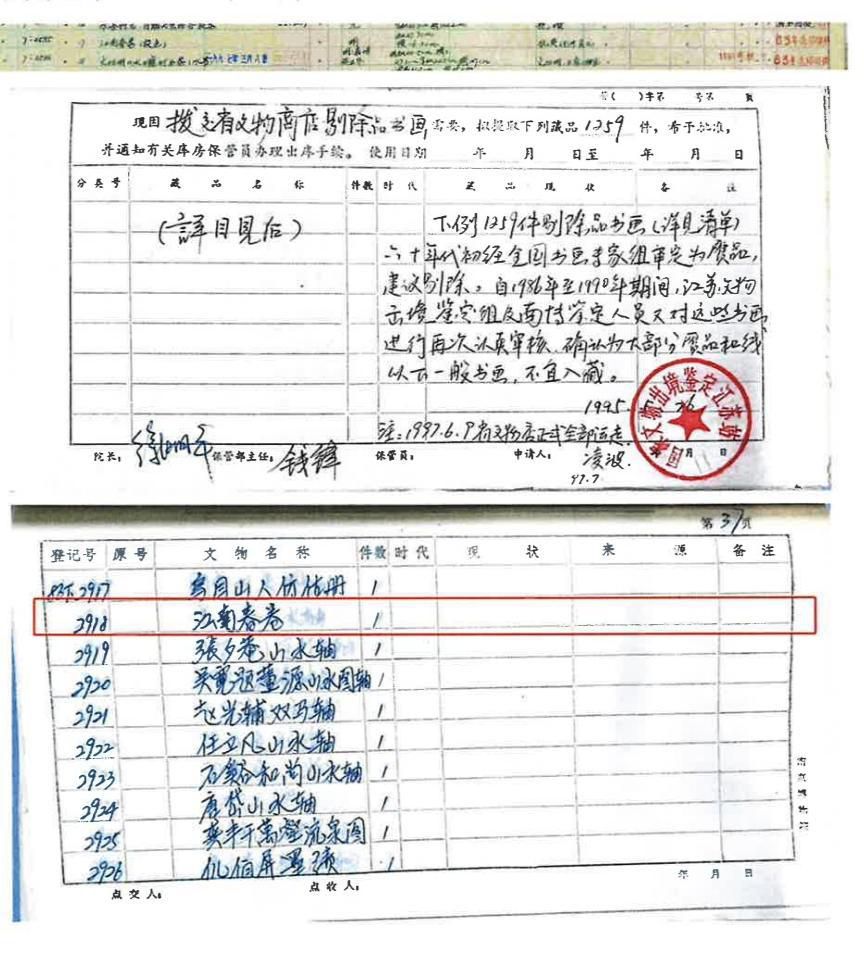 7:2595
江南春卷（设色）
一九六七年三月八日
63年
字第 号第 页
现因 拨交省文物商店剔除品书画 需要，拟提取下列藏品 1259 件，希予批准，
并通知有关库房保管员办理出库手续。 使用日期 年 月 日至 年 月 日
分类号 藏品名称 件数 时代 藏品现状 备注
（詳目見后）
下例1259件剔除品书画（详见清单）
六十年代初经全国书画专家组审定为赝品，
建议剔除。自1986年至1990年期间，江苏文物
出境鉴定组及南博鉴定人员又对这些书画
进行再次认真审核，确认为大部分赝品和线
以下一般书画，不宜入藏。
1995. 26
国家文物出境鉴定江苏站
注：1997.6.9省文物店正式全部运走
院长： 徐湖平 保管部主任： 钱锋 保管员： 申请人： 凌波 月 日
97.7.
第37页
登记号 原号 文物名称 件数 时代 现状 来源 备注
2917 吾目山人仿古册 1
2918 江南春卷 1
2919 張夕庵山水轴 1
2920 吴寛题董源山水图轴 1
2921 赵光辅双马轴 1
2922 任立凡山水轴 1
2923 石谿和尚山水轴 1
2924 唐岱山水轴 1
2925 龚半千萬壑流泉图 1
2926 仇佰屏墨 1
点交人： 点收人： 年 月 日